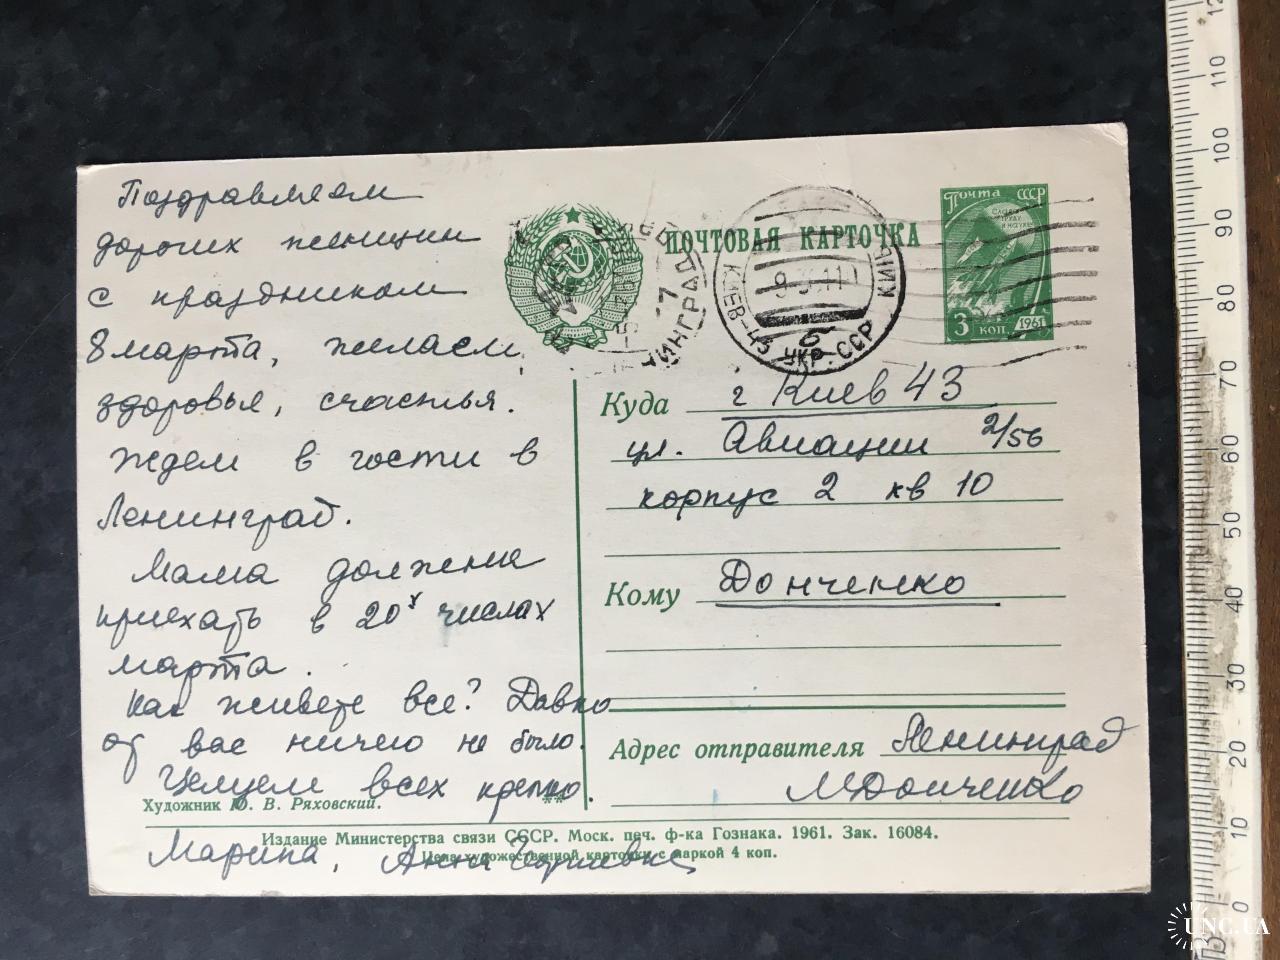 Поздравляем
дорогих женщин
с праздником
8 марта, желаем
здоровья, счастья.
Ждем в гости в
Ленинград.
Мама должна
приехать в 20х числах
марта.
Как живете все? Давно
от вас ничего не было.
Целуем всех крепко.
Марина, Анна
Художник Ю. В. Ряховский.
**
Издание Министерства связи СССР. Моск. печ. ф-ка Гознака. 1961. Зак. 16084.
Цена художественной карточки с маркой 4 коп.
ПОЧТОВАЯ КАРТОЧКА
КИЕВ-43 УКР. ССР
Почта СССР
Слава
труду
и науке
3 коп. 1961
Куда г Киев 43
ул. Авиации 2/56
корпус 2 кв 10
Кому Донченко
Адрес отправителя Ленинград
МДонченко
0 10 20 30 40 50 60 70 80 90 100 110
UNC.UA